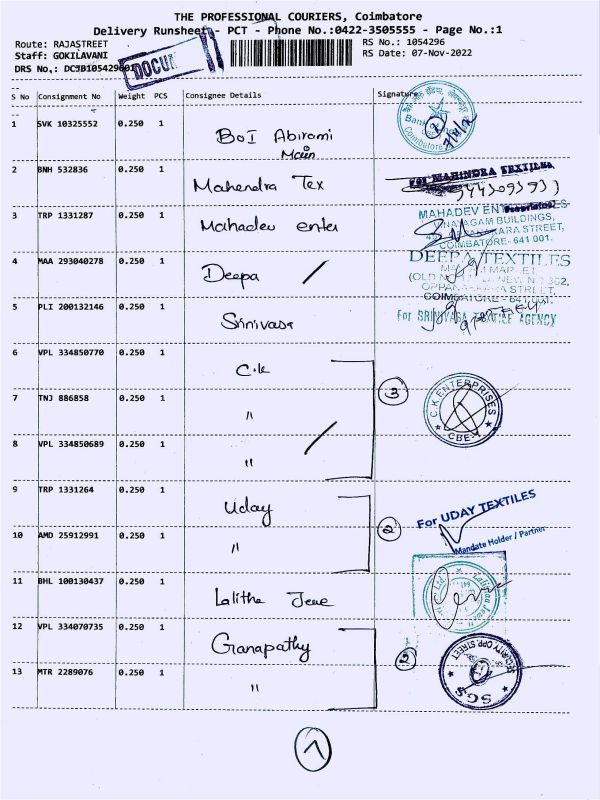 THE PROFESSIONAL COURIERS, Coimbatore
Delivery Runsheet - PCT - Phone No.:0422-3505555 - Page No.:1
Route: RAJASTREET RS No.: 1054296
Staff: GOKILAVANI RS Date: 07-Nov-2022
DRS No,: DCSB105429601
DOCUM
S No Consignment No Weight PCS Consignee Details Signature
1 SVK 10325552 0.250 1 BOI Abirami
Main
2 BNH 532836 0.250 1 Mahendra Tex
For MAHINDRA TEXTILES
3 TRP 1331287 0.250 1 Mahadev enter
MAHADEV
BUILDINGS,
STREET,
COIMBATORE- 641 001.
4 MAA 293040278 0.250 1 Deepa /
DEEPA TEXTILES
5 PLI 200132146 0.250 1 Srinivasa
For SRINIVASA TEXTILE AGENCY
6 VPL 334850770 0.250 1 C.K
3
C.K.ENTERPRISES
CBE-1
7 TNJ 886858 0.250 1 "
8 VPL 334850689 0.250 1 " /
9 TRP 1331264 0.250 1 Uday
2
For UDAY TEXTILES
Mandate Holder / Partner
10 AMD 25912991 0.250 1 "
11 BHL 100130437 0.250 1 Lalitha Jewe
12 VPL 334070735 0.250 1 Ganapathy
2
SGS
13 MTR 2289076 0.250 1 "
1